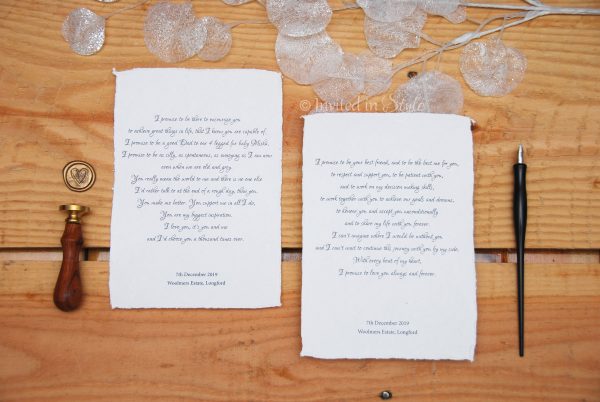 I promise to be there to encourage you
to achieve great things in life, that I know you are capable of.
I promise to be a good Dad to our 4 legged fur baby Mishk.
I promise to be as silly, as spontaneous, as annoying as I am now
even when we are old and grey.
You really mean the world to me and there is no one else
I'd rather talk to at the end of a rough day, than you.
You make me better. You support me in all I do.
You are my biggest inspiration.
I love you, it's you and me
and I'd choose you a thousand times over.
7th December 2019
Woolmers Estate, Longford
© Invited in Style
I promise to be your best friend, and to be the best me for you,
to respect and support you, to be patient with you,
and to work on my decision making skills,
to work together with you to achieve our goals and dreams,
to cherish you and accept you unconditionally
and to share my life with you forever.
I can't imagine where I would be without you
and I can't wait to continue this journey with you by my side.
With every beat of my heart,
I promise to love you always and forever.
7th December 2019
Woolmers Estate, Longford